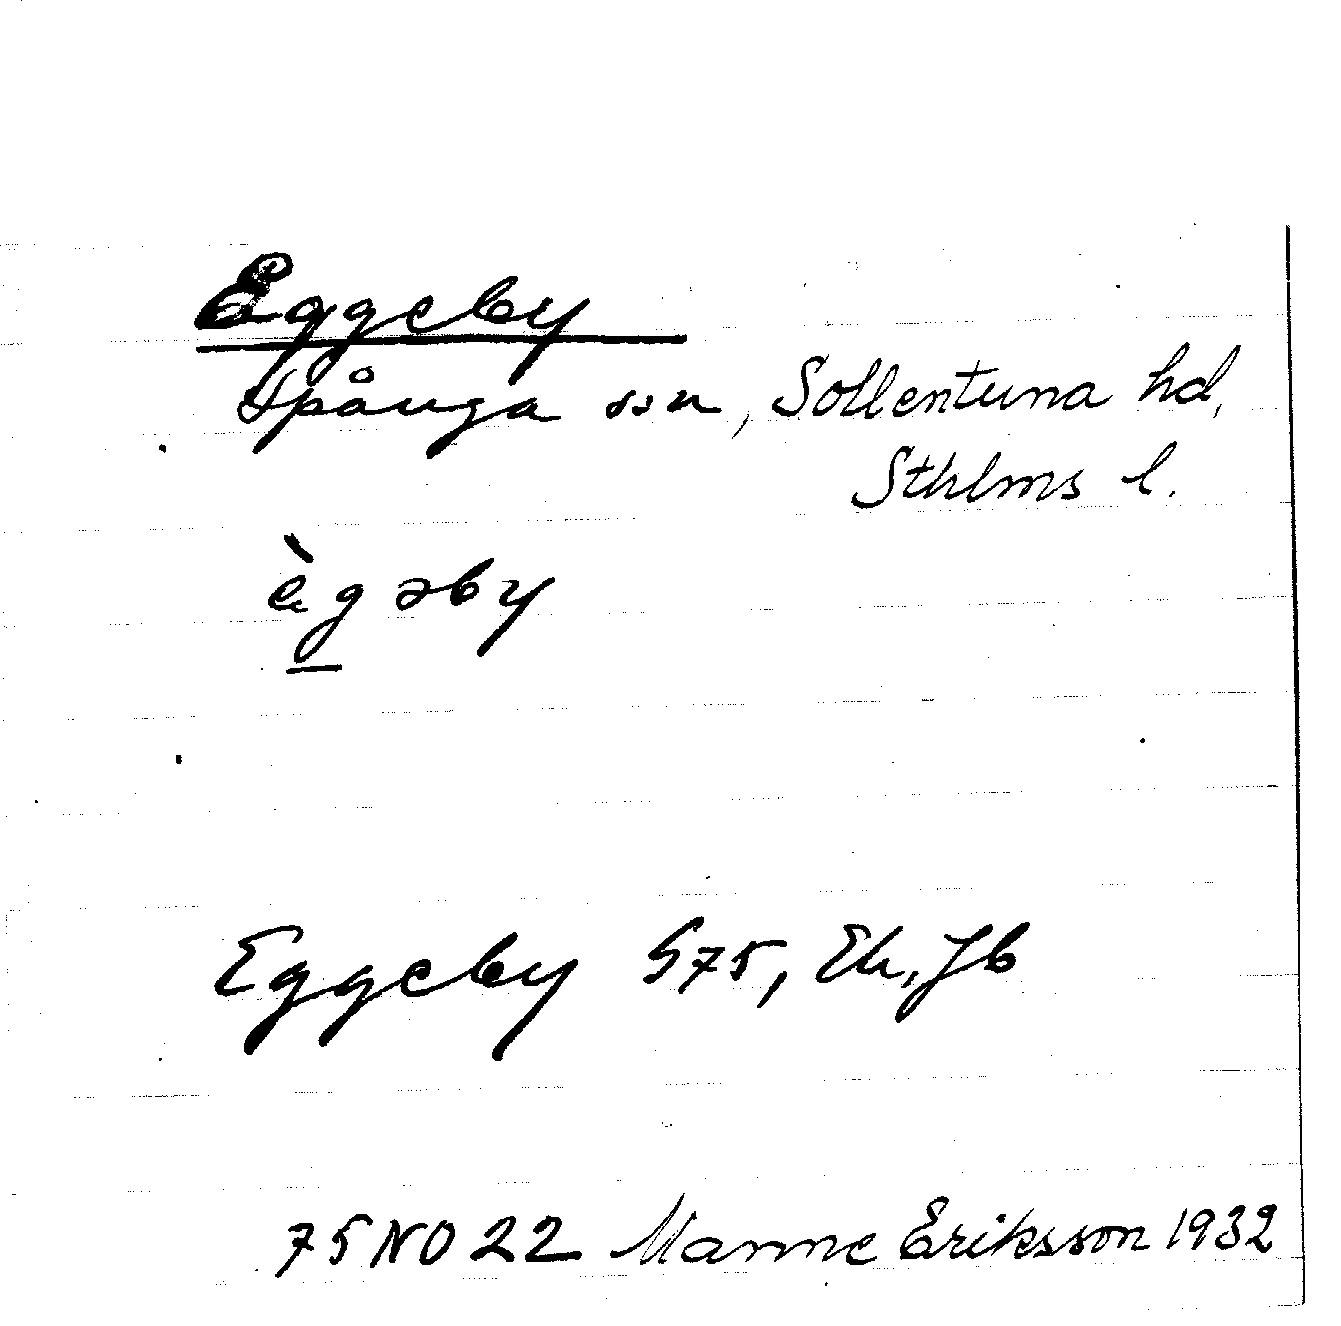 Eggeby
Spånga ssn, Sollentuna hd,
Sthlms l.
ègəby
Eggeby S75, Ek, Jb
75 NO 22 Manne Eriksson 1932